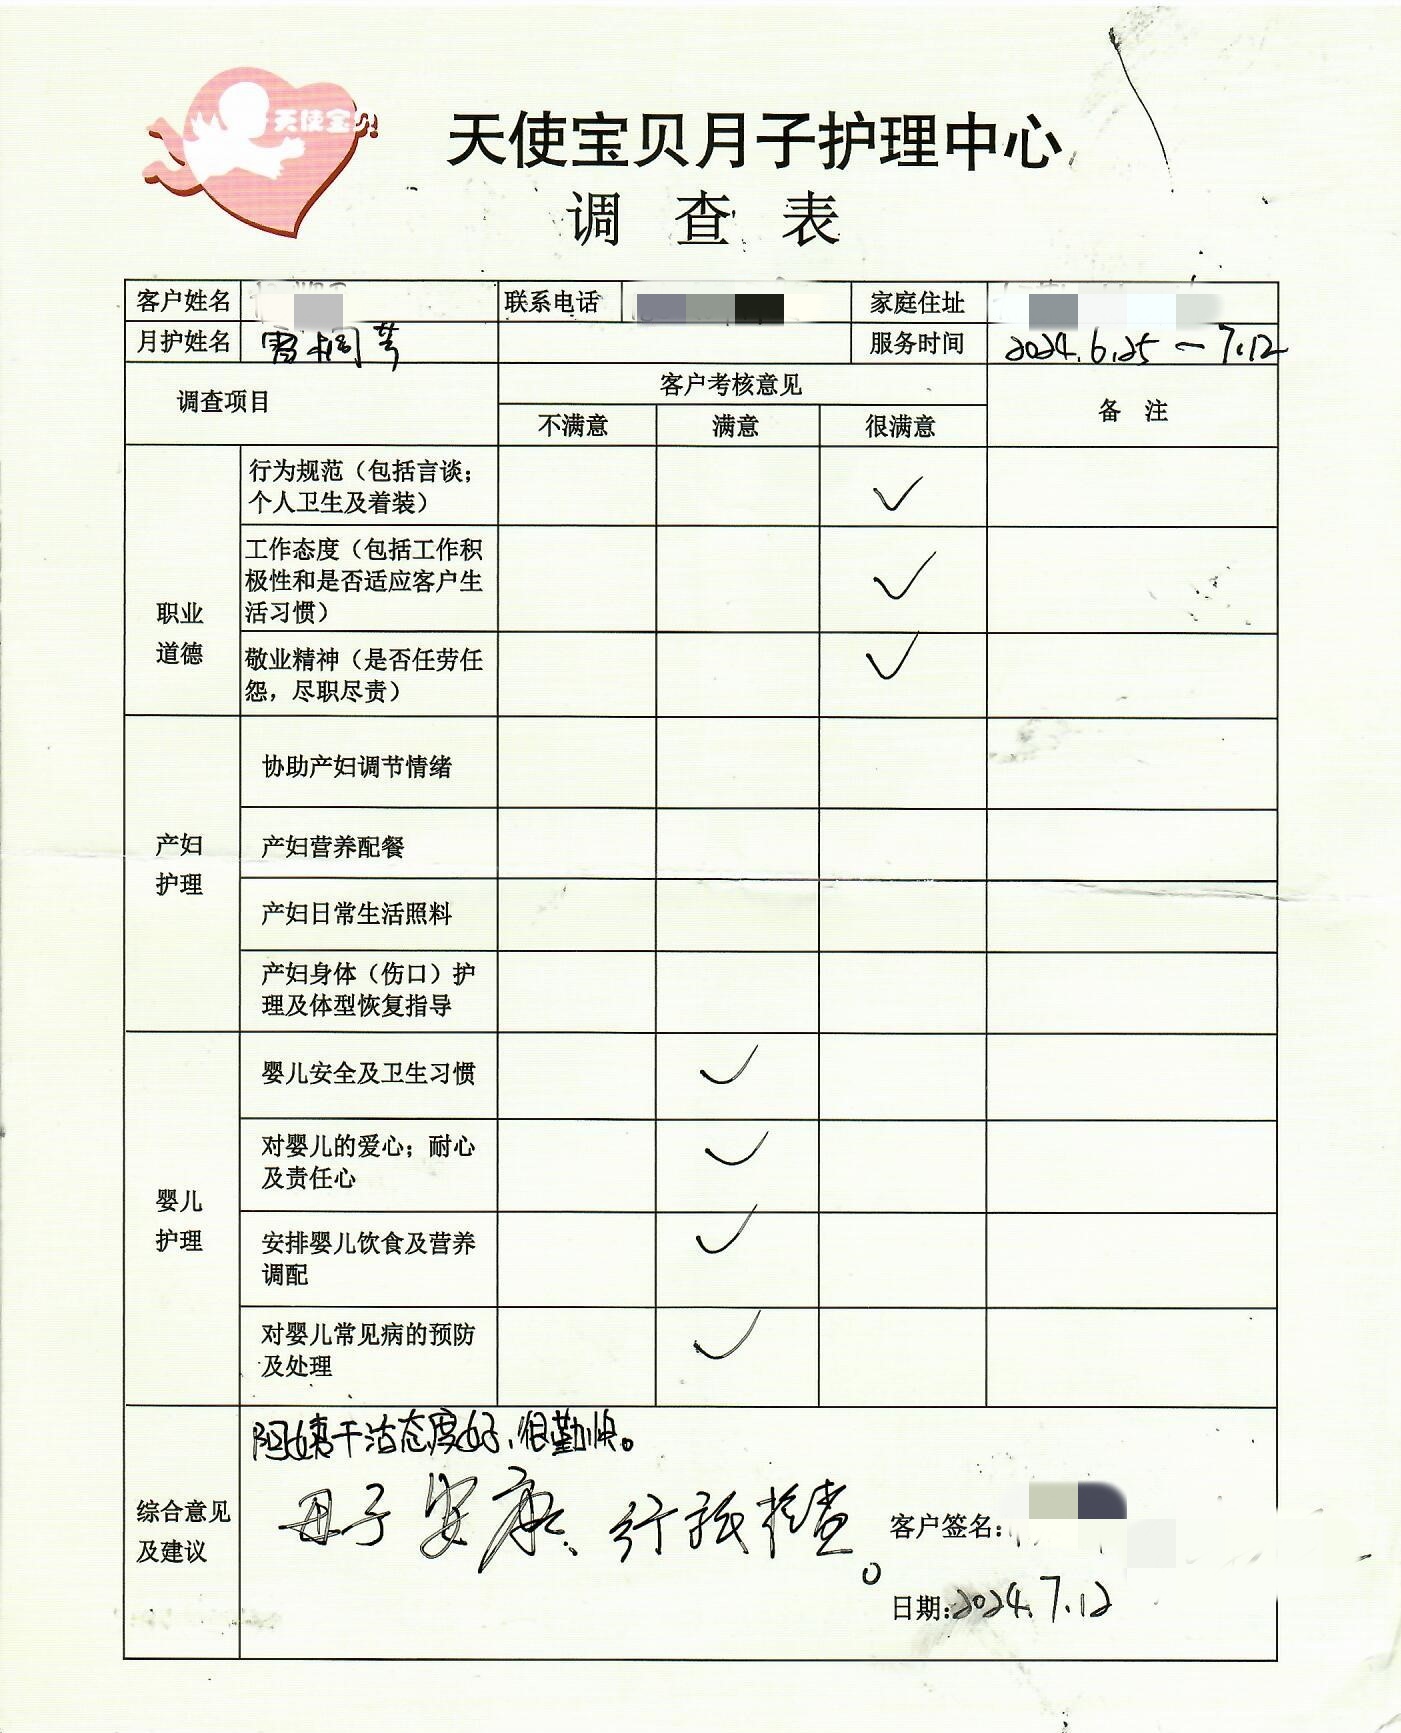 天使宝贝
天使宝贝月子护理中心
调 查 表
客户姓名 联系电话 家庭住址
月护姓名 服务时间 2024.6.25 — 7.12
调查项目 客户考核意见 备 注
不满意 满意 很满意
职业
道德
行为规范（包括言谈；
个人卫生及着装） ✓
工作态度（包括工作积
极性和是否适应客户生
活习惯） ✓
敬业精神（是否任劳任
怨，尽职尽责） ✓
产妇
护理
协助产妇调节情绪
产妇营养配餐
产妇日常生活照料
产妇身体（伤口）护
理及体型恢复指导
婴儿
护理
婴儿安全及卫生习惯 ✓
对婴儿的爱心；耐心
及责任心 ✓
安排婴儿饮食及营养
调配 ✓
对婴儿常见病的预防
及处理 ✓
综合意见
及建议
阿姨干活态度好，很勤快。
母子安康、
客户签名：
日期：2024.7.12